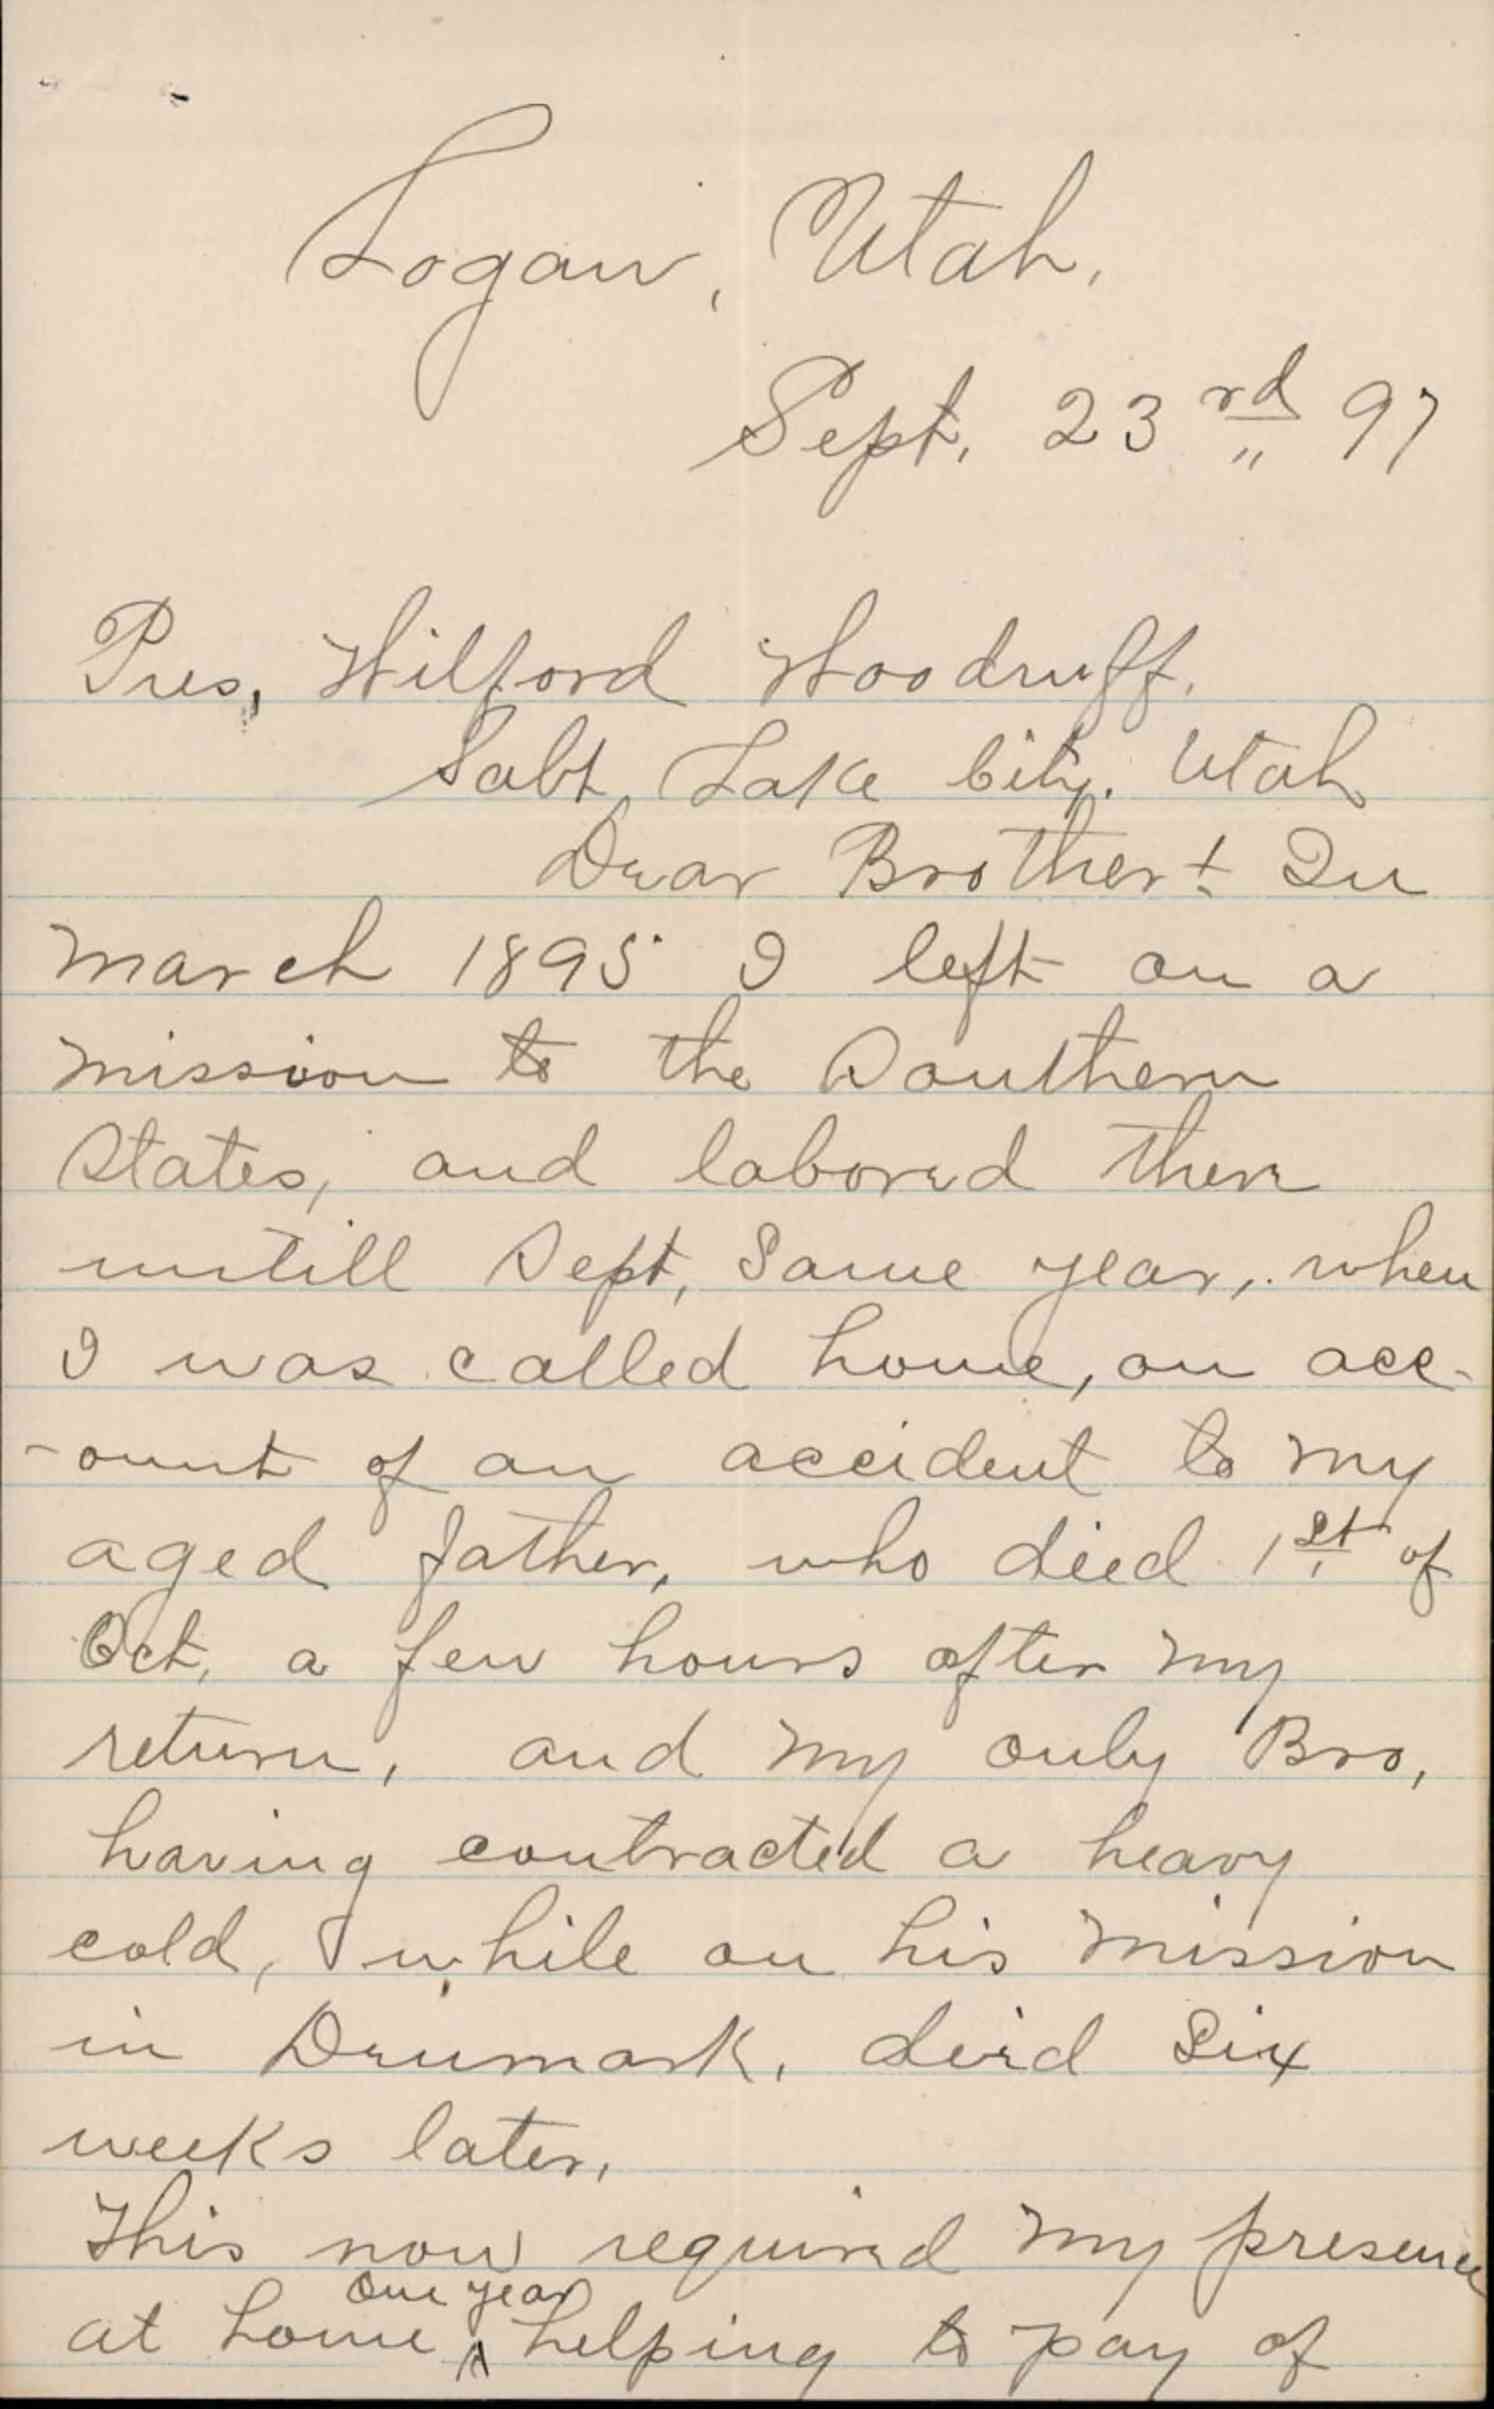 Logan, Utah.
Sept. 23rd 97
Pres, Wilford Woodruff.
Salt Lake City. Utah
Dear Brother:- In
March 1895 I left on a
mission to the Southern
States, and labored there
untill Sept, Same year, when
I was called home, on acc-
-ount of an accident to my
aged father, who died 1st of
Oct, a few hours after my
return, and my only Bro,
having contracted a heavy
cold, while on his mission
in Denmark, deid Six
weeks later,
This now required my presence
one year
at home ^ helping to pay of